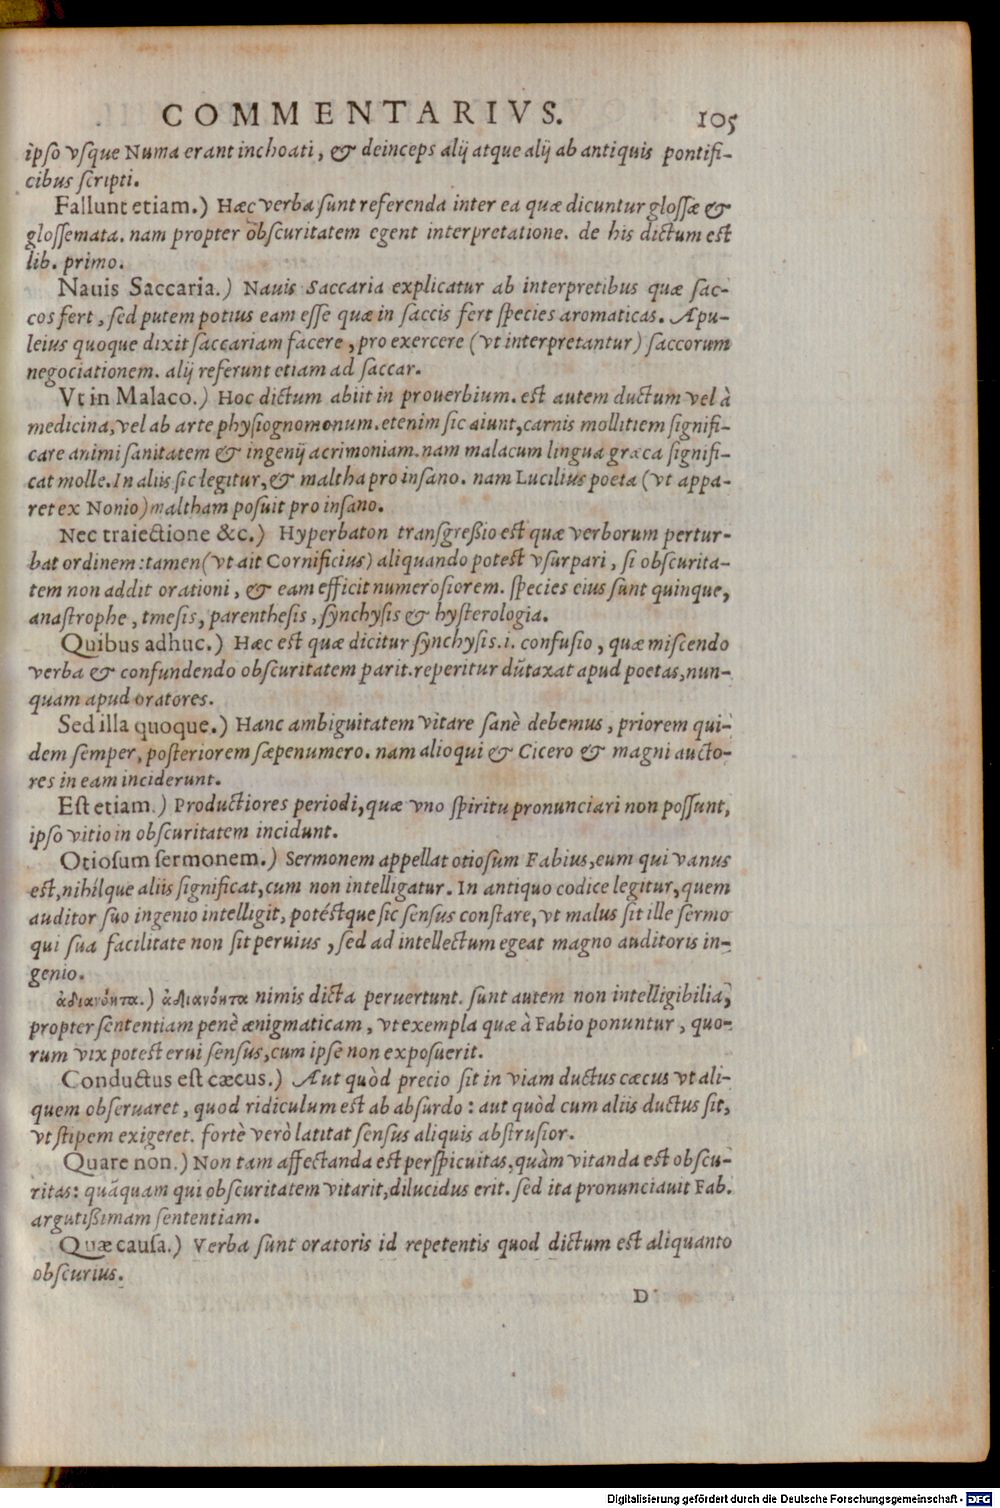 COMMENTARIVS. 105
ipso vsque Numa erant inchoati, & deinceps alij atque alij ab antiquis pontifi-
cibus scripti.
Fallunt etiam.) Hæc verba sunt referenda inter ea quæ dicuntur glossæ &
glossemata. nam propter obscuritatem egent interpretatione. de his dictum est
lib. primo.
Nauis Saccaria.) Nauis Saccaria explicatur ab interpretibus quæ sac-
cos fert, sed putem potius eam esse quæ in saccis fert species aromaticas. Apu-
leius quoque dixit saccariam facere, pro exercere (vt interpretantur) saccorum
negociationem. alij referunt etiam ad saccar.
Vt in Malaco.) Hoc dictum abiit in prouerbium. est autem ductum vel à
medicina, vel ab arte physiognomonum. etenim sic aiunt, carnis mollitiem signifi-
care animi sanitatem & ingenij acrimoniam. nam malacum lingua græca signifi-
cat molle. In aliis sic legitur, & maltha pro insano. nam Lucilius poeta (vt appa-
ret ex Nonio) maltham posuit pro insano.
Nec traiectione &c.) Hyperbaton transgreßio est quæ verborum pertur-
bat ordinem: tamen (vt ait Cornificius) aliquando potest vsurpari, si obscurita-
tem non addit orationi, & eam efficit numerosiorem. species eius sunt quinque,
anastrophe, tmesis, parenthesis, synchysis & hysterologia.
Quibus adhuc.) Hæc est quæ dicitur synchysis. i. confusio, quæ miscendo
verba & confundendo obscuritatem parit. reperitur dũtaxat apud poetas, nun-
quam apud oratores.
Sed illa quoque.) Hanc ambiguitatem vitare sanè debemus, priorem qui-
dem semper, posteriorem sæpenumero. nam alioqui & Cicero & magni aucto-
res in eam inciderunt.
Est etiam.) Productiores periodi, quæ vno spiritu pronunciari non possunt,
ipso vitio in obscuritatem incidunt.
Otiosum sermonem.) Sermonem appellat otiosum Fabius, eum qui vanus
est, nihílque aliis significat, cum non intelligatur. In antiquo codice legitur, quem
auditor suo ingenio intelligit, potéstque sic sensus constare, vt malus sit ille sermo
qui sua facilitate non sit peruius, sed ad intellectum egeat magno auditoris in-
genio.
ἀδιανόητα.) ἀδιανόητα nimis dicta peruertunt. sunt autem non intelligibilia,
propter sententiam penè ænigmaticam, vt exempla quæ à Fabio ponuntur, quo-
rum vix potest erui sensus, cum ipse non exposuerit.
Conductus est cæcus.) Aut quòd precio sit in viam ductus cæcus vt ali-
quem obseruaret, quod ridiculum est ab absurdo: aut quòd cum aliis ductus sit,
vt stipem exigeret. fortè verò latitat sensus aliquis abstrusior.
Quare non.) Non tam affectanda est perspicuitas, quàm vitanda est obscu-
ritas: quãquam qui obscuritatem vitarit, dilucidus erit. sed ita pronunciauit Fab.
argutißimam sententiam.
Quæ causa.) Verba sunt oratoris id repetentis quod dictum est aliquanto
obscurius.
D
Digitalisierung gefördert durch die Deutsche Forschungsgemeinschaft - DFG